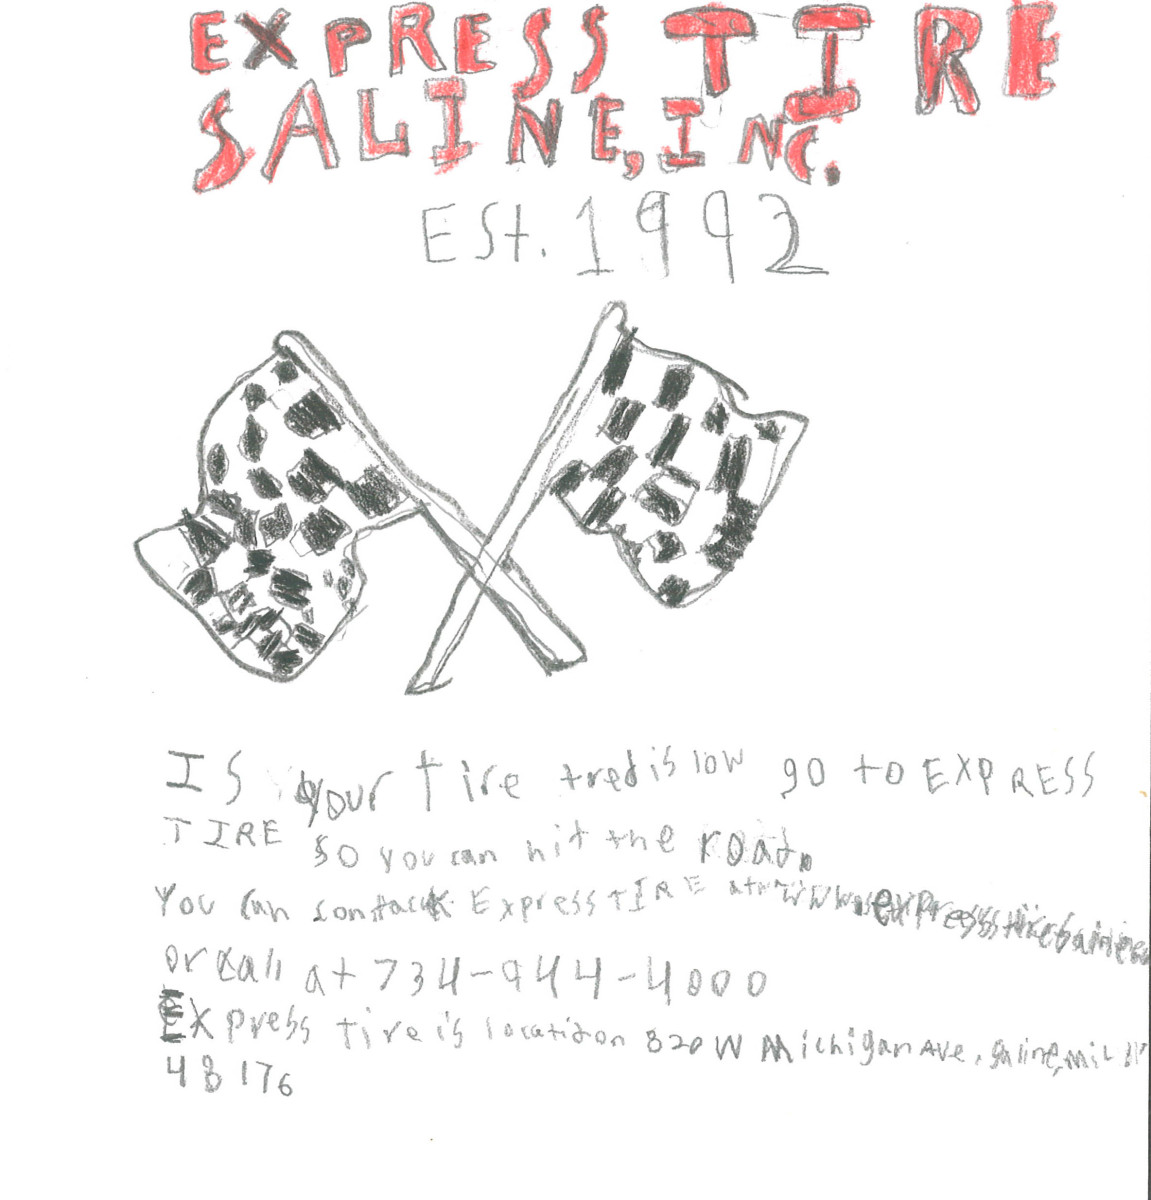 EXPRESS TIRE
SALINE, INC.
Est. 1992
IS your tire tred is low go to EXPRESS
TIRE so you can hit the road.
You can contack Express TIRE at www.expresstiresaline
or call at 734-944-4000
Express tire is locatidon 820 W Michigan Ave. saline, mi
48176